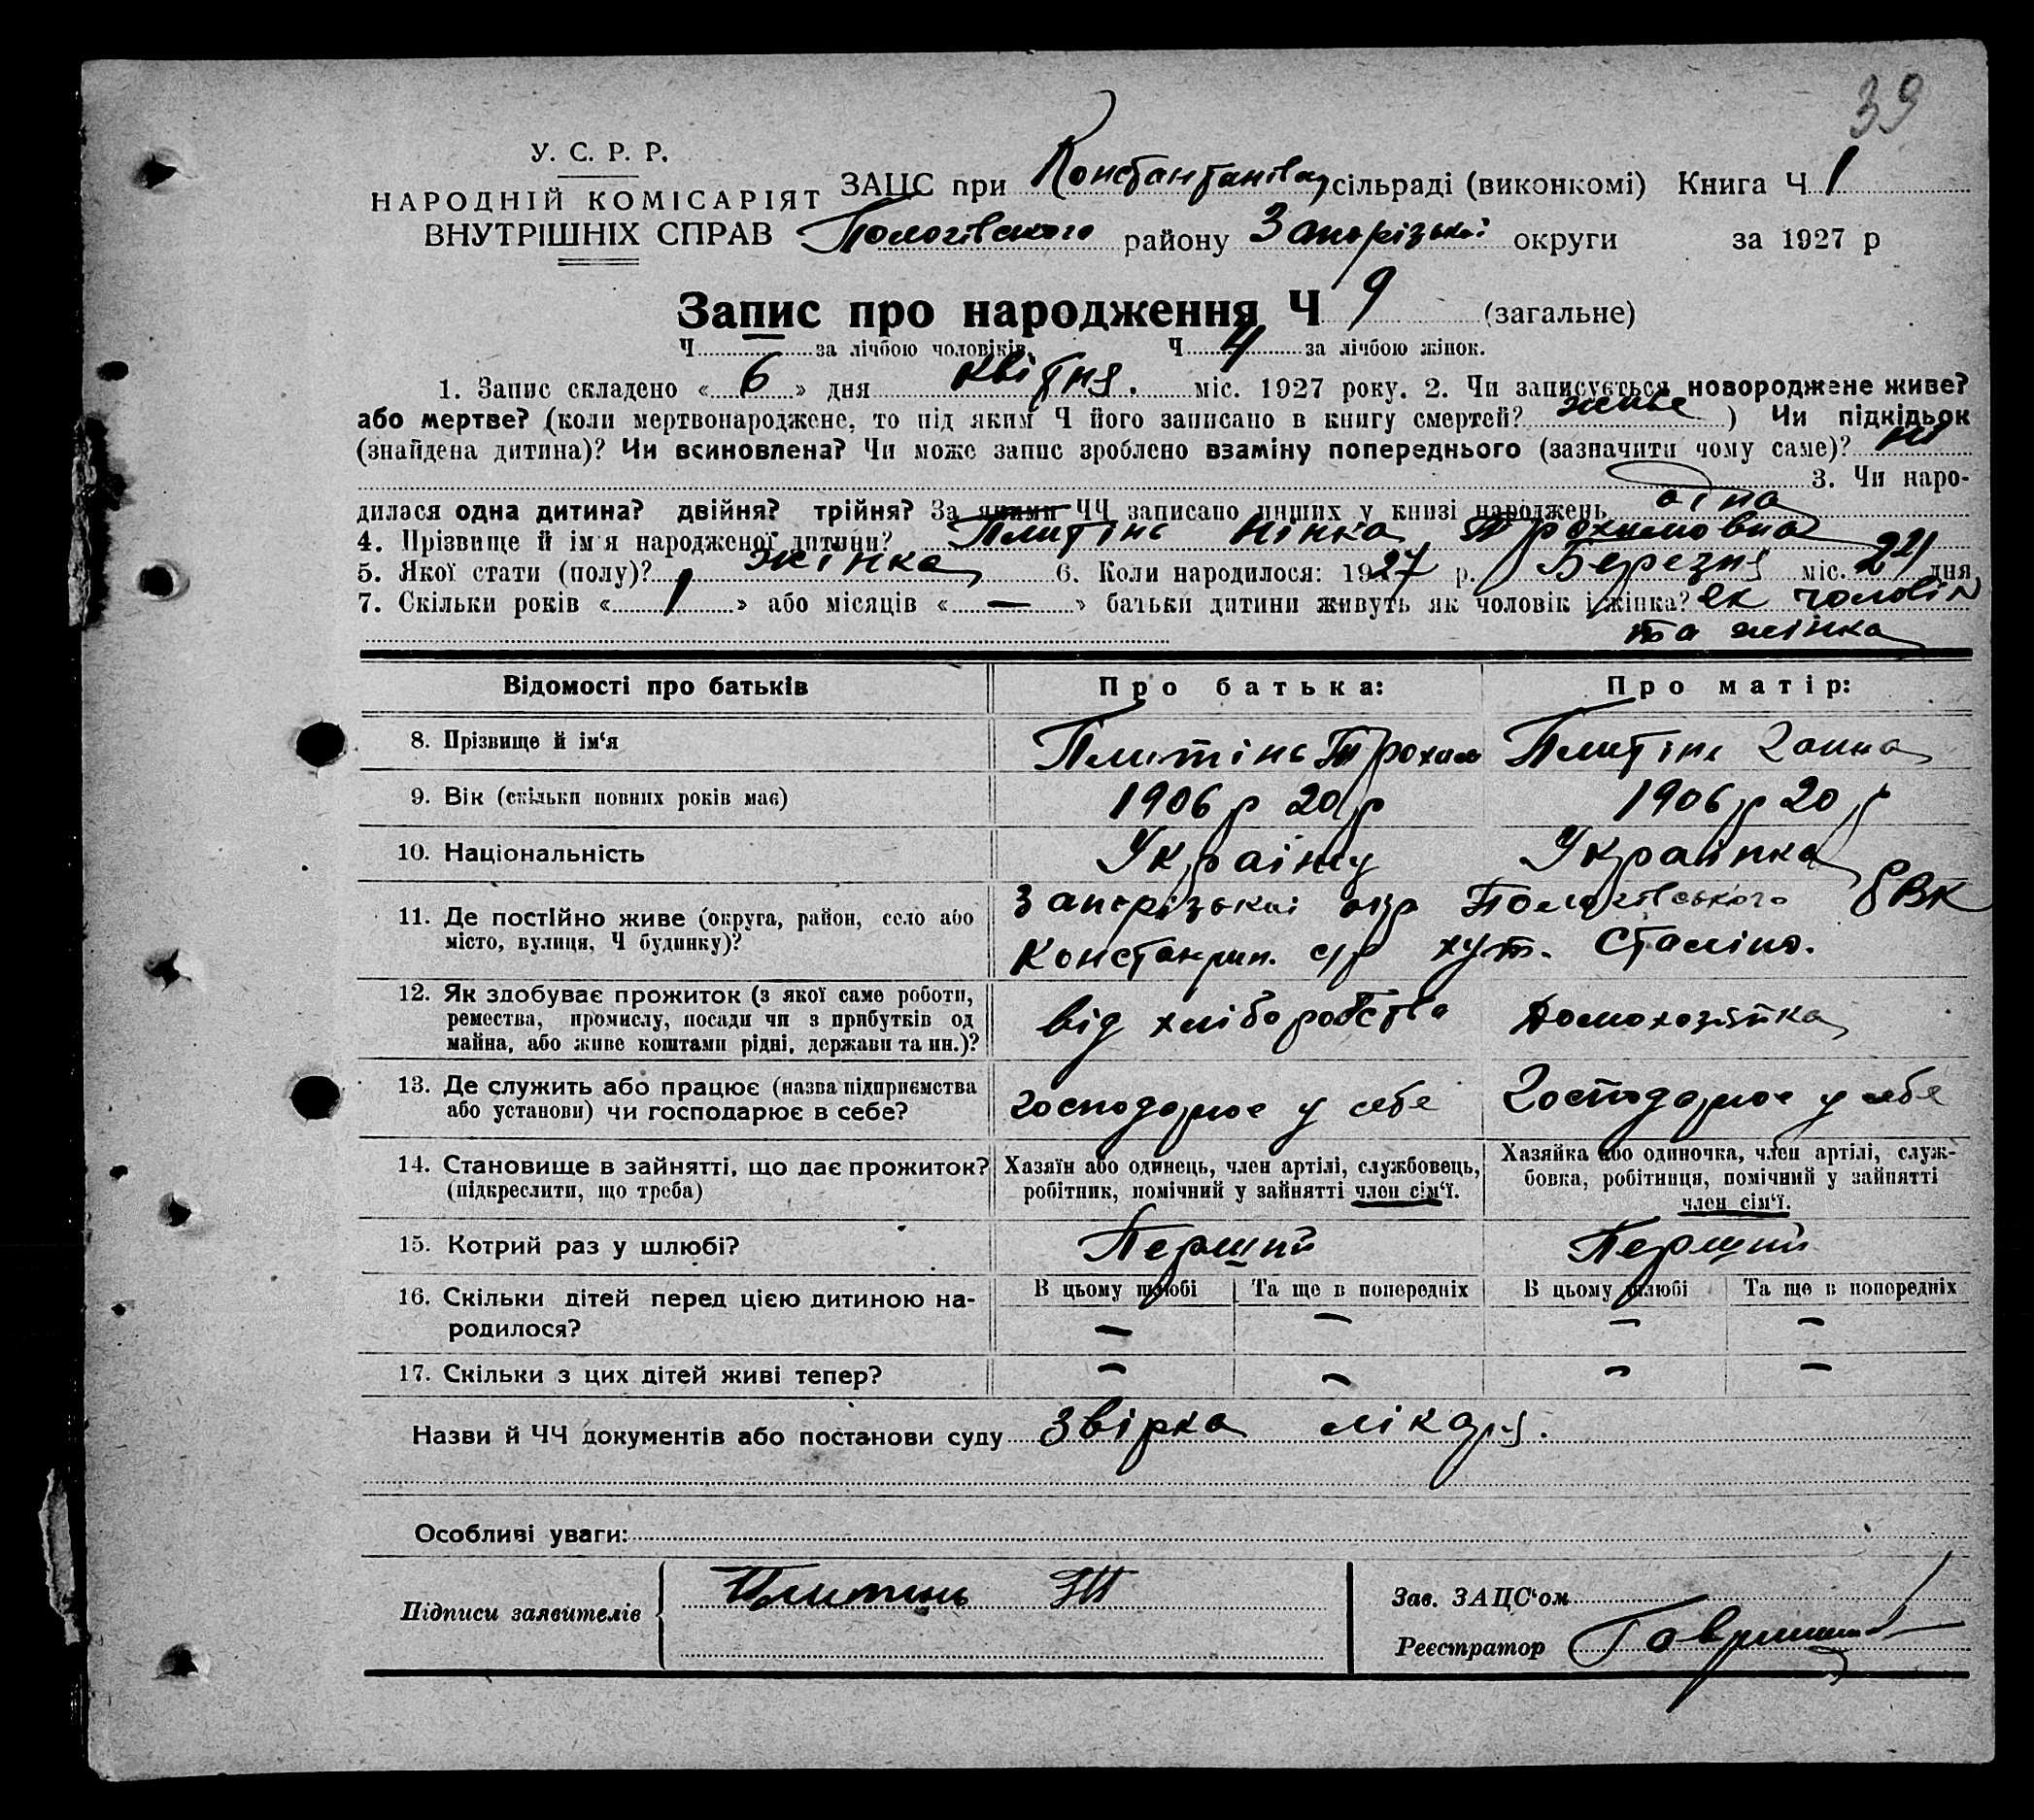 39
У. С. Р. Р.
НАРОДНІЙ КОМІСАРІЯТ
ВНУТРІШНІХ СПРАВ
ЗАЦС при сільраді (виконкомі) Книга Ч 1
Пологівського району Запорізької округи за 1927 р
Запис про народження Ч 9 (загальне)
Ч за лічбою чоловіків. Ч 4 за лічбою жінок.
1. Запис складено « 6 » дня квітня. міс. 1927 року. 2. Чи записується новороджене живе?
або мертве? (коли мертвонароджене, то під яким Ч його записано в книгу смертей? живе ) Чи підкідьок
(знайдена дитина)? Чи всиновлена? Чи може запис зроблено взаміну попереднього (зазначити чому саме)? ні
3. Чи наро-
дилася одна дитина? двійня? трійня? За якими ЧЧ записано инших у книзі народжень одна
4. Прізвище й ім'я народженої дитини? Плитінь Нінка Трохимовна
5. Якої стати (полу)? жінка 6. Коли народилося: 1927 р. Березня міс. 221 дня
7. Скільки років « 1 » або місяців « — » батьки дитини живуть як чоловік і жінка? як чоловік
та жінка
Відомості про батьків Про батька: Про матір:
8. Прізвище й ім'я Плитінь Трохим Плитінь Ганна
9. Вік (скільки повних років має) 1906 р 20 р 1906 р 20 р
10. Національність Українец Українка
11. Де постійно живе (округа, район, село або
місто, вулиця, Ч будинку)?
Запорізької окр Пологівського РВК
с/р хут. Сталіна.
12. Як здобуває прожиток (з якої саме роботи,
ремества, промислу, посади чи з прибутків од
майна, або живе коштами рідні, держави та ин.)?
від хліборобства домохозяйка
13. Де служить або працює (назва підприємства
або установи) чи господарює в себе?
господарює у себе Господарює у себе
14. Становище в зайнятті, що дає прожиток?
(підкреслити, що треба)
Хазяїн або одинець, член артілі, службовець,
робітник, помічний у зайнятті член сім'ї.
Хазяйка або одиночка, член артілі, служ-
бовка, робітниця, помічний у зайнятті
член сім'ї.
15. Котрий раз у шлюбі? Перший Перший
16. Скільки дітей перед цією дитиною на-
родилося?
В цьому шлюбі Та ще в попередніх В цьому шлюбі Та ще в попередніх
— — — —
17. Скільки з цих дітей живі тепер? — — — —
Назви й ЧЧ документів або постанови суду звірка лікаря.
Особливі уваги:
Підписи заявителів Плитинь
Зав. ЗАЦС'ом
Реєстратор